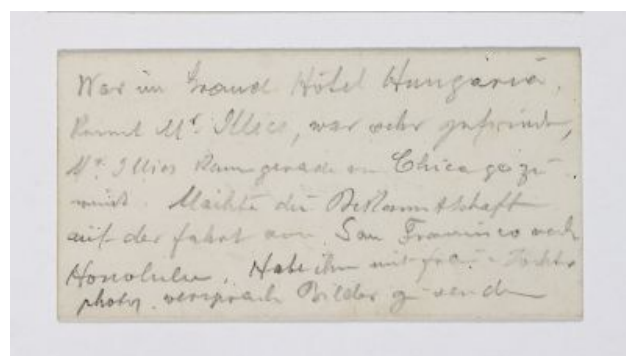 War im Grand Hôtel Hungaria,
kennt Mr. Illies, war sehr gefreut,
Mr. Illies kam gerade von Chicago zu-
rück. Machte die Bekanntschaft
auf der fahrt von San Francisco nach
Honolulu. Habe ihn mit frau u Tochter
photogr. versprach Bilder zu senden